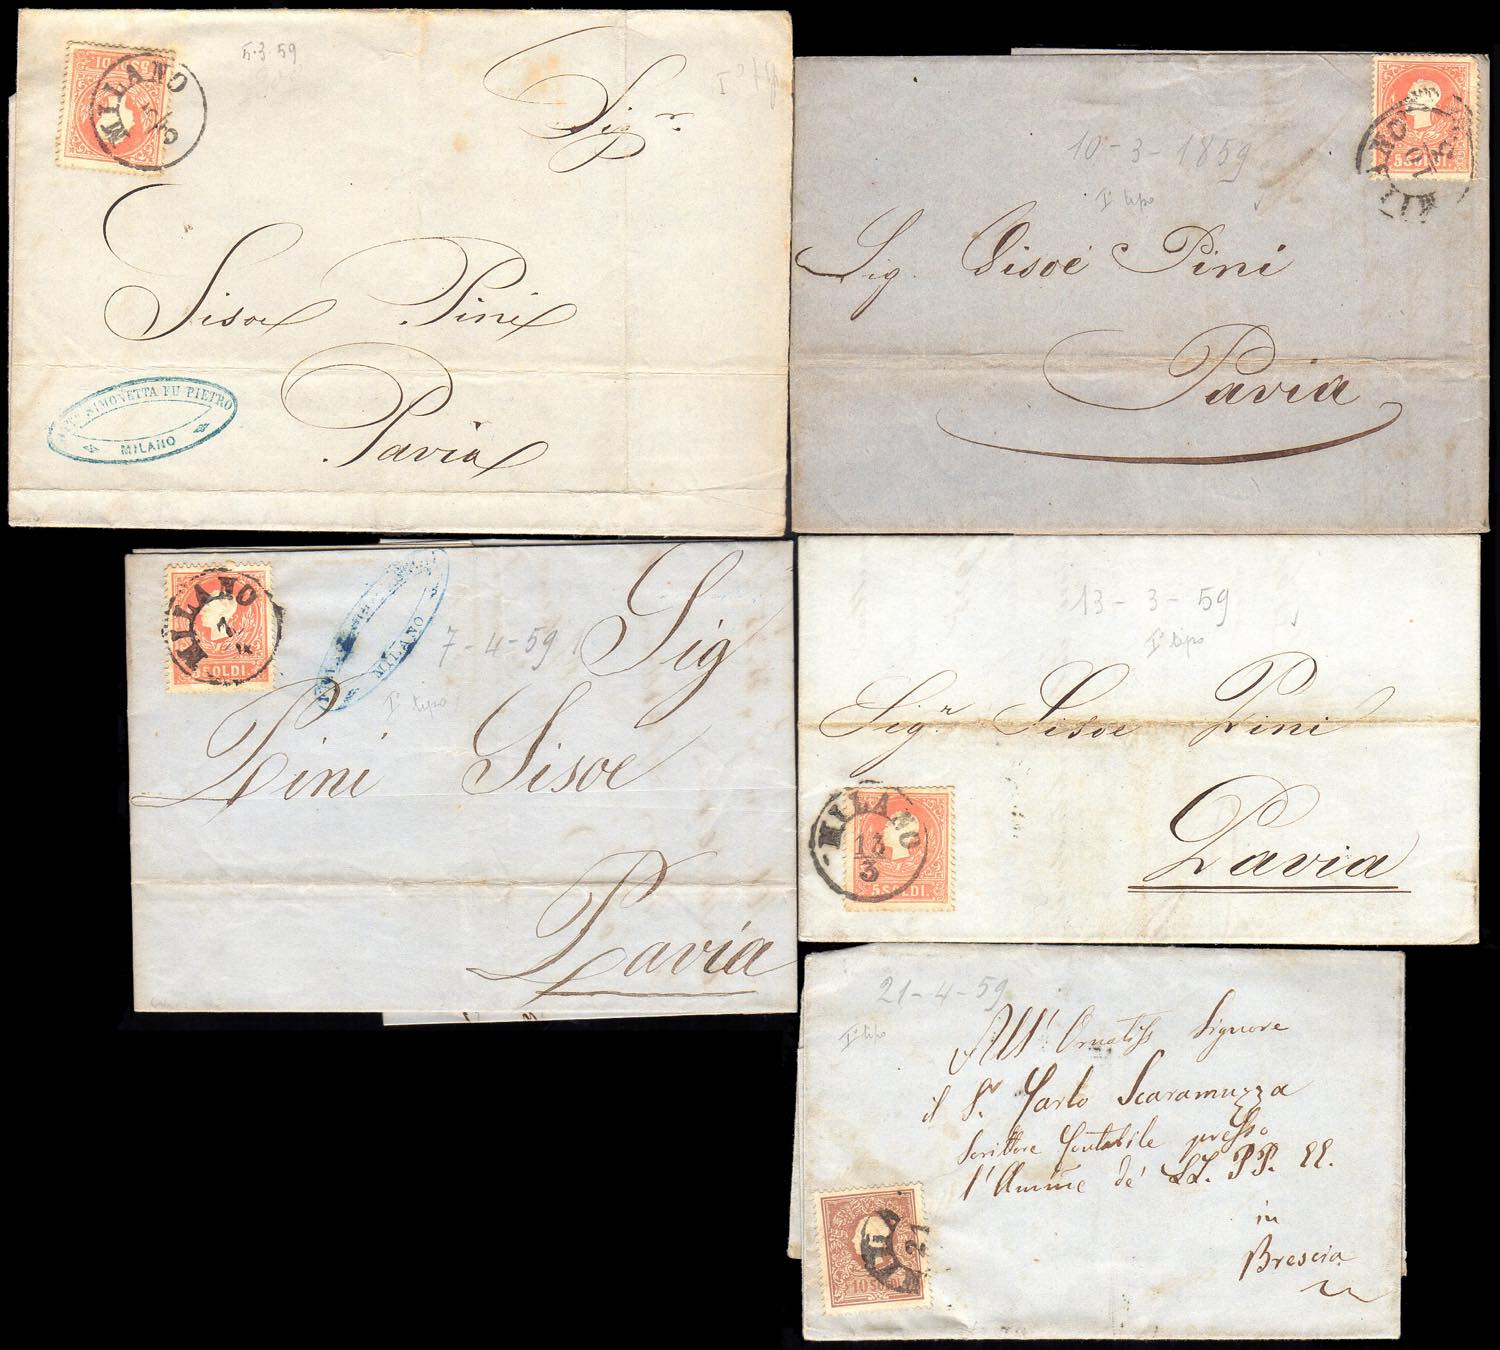 5-3-59
5 SOLDI
MILANO
5/3
Sigr.
Sisoe Pini
Pavia
SIMONETTA FU PIETRO
MILANO
10-3-1859
I° tipo
5 SOLDI.
MILANO
10/3
Sig. Sisoè Pini
Pavia
MILANO
7
5 SOLDI.
MILANO
7-4-59
I° tipo
Sig
Pini Sisoe
Pavia
13-3-59
I° tipo
Sigr Sisoe Pini
Pavia
MILANO
13
3
5 SOLDI.
21-4-59
I° tipo
All' Ornatiss Signore
il Sr Carlo Scaramuzza
Scrittore Contabile presso
l'Ammne de' LL. PP. EE.
in
Brescia
MILA
21
10 SOLDI